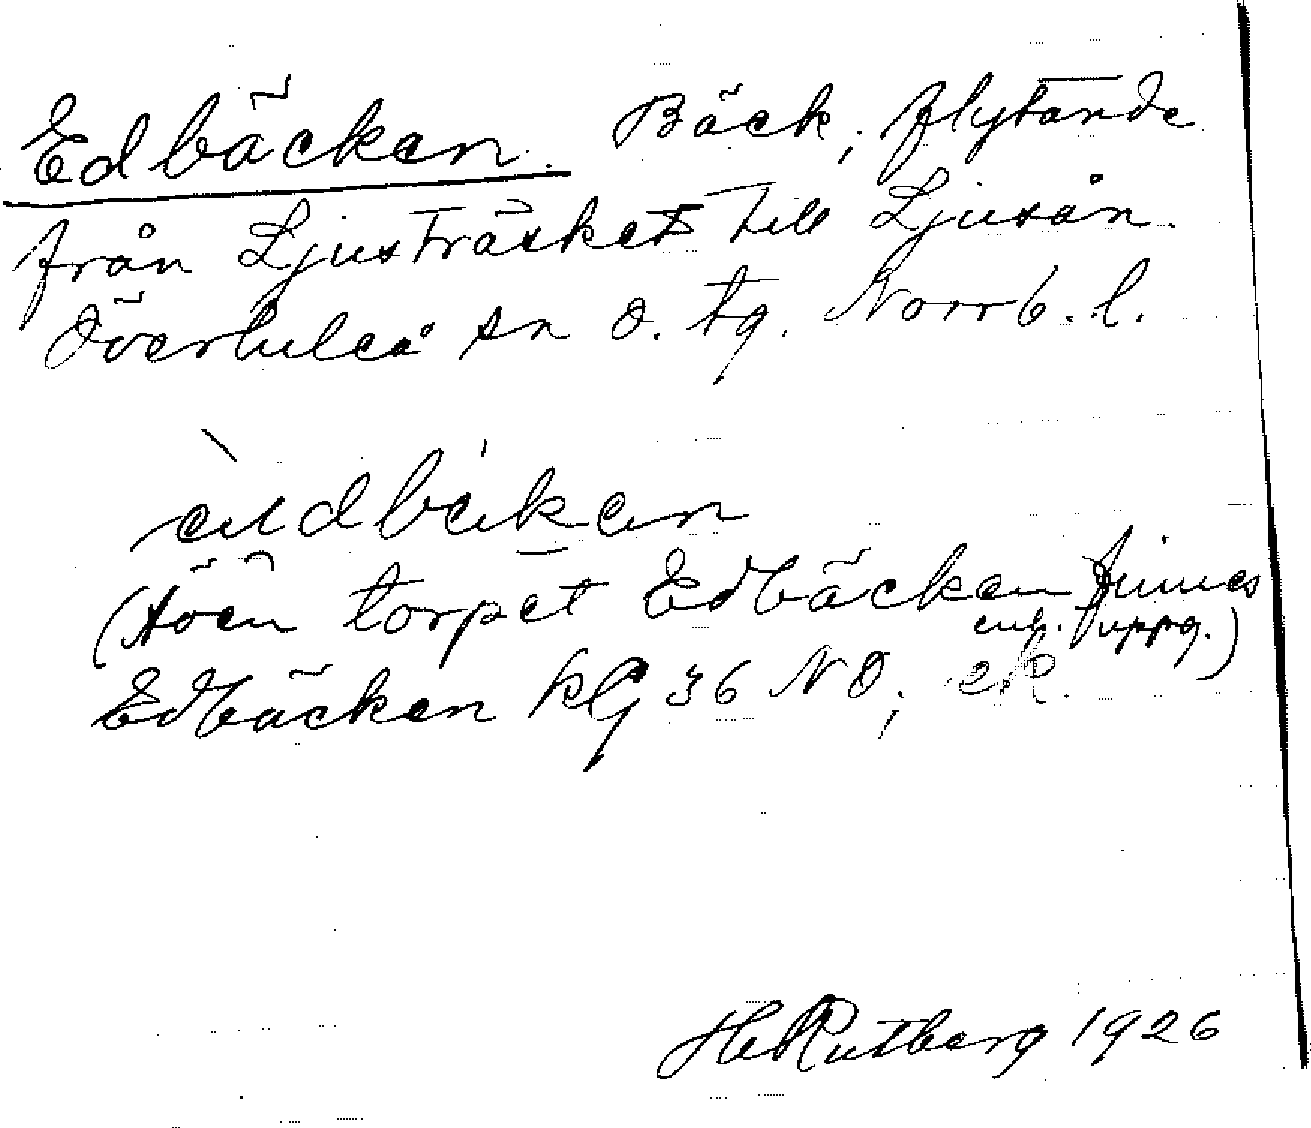 Edbäcken. Bäck, flytande
från Ljusträsket till Ljusån.
Överluleå sn o. tg. Norrb. l.
(Även torpet Edbäcken finnes
enl. uppg.)
Edbäcken 36 NO,
Rutberg 1926